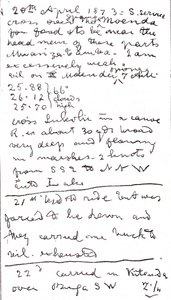 20th April 1873 = S. service
cross over the Moenda
for food & to be near the
head men of these parts
Moanzambamba. I am
excessively weak
25.88
26.12 clouds
25.70 high 66°
cross Lokulu in a canoe
R. is about 30 yds broad
very deep and flowing
in marshes 2 knots
from SSE to NNW
into Lake
21st tried to ride but was
forced to lie down and
they carried me back to
vil. exhausted
22d carried in Kitanda
over Buga SW 2¼